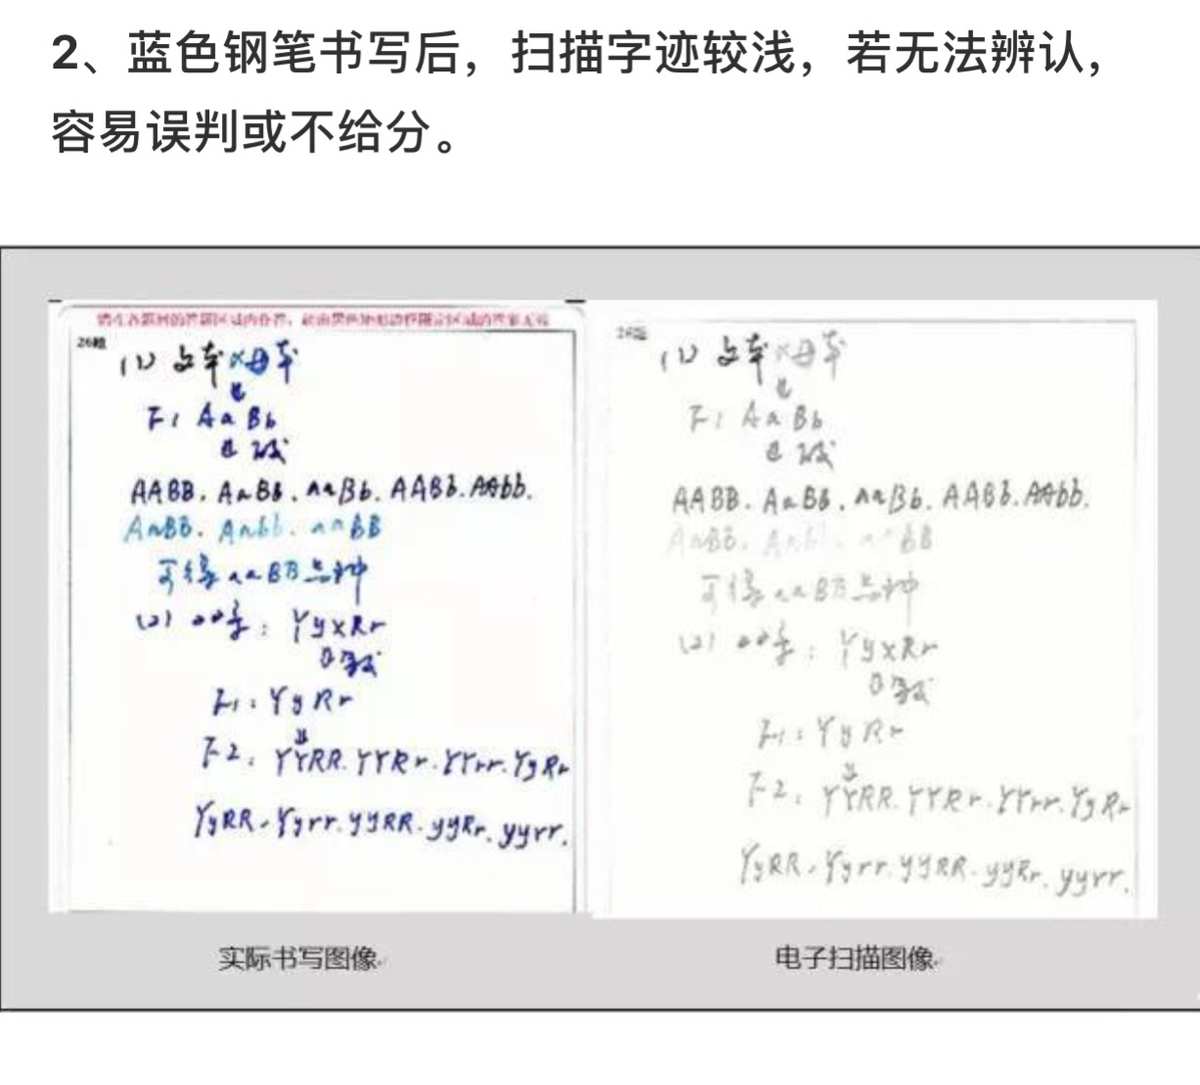 2、蓝色钢笔书写后，扫描字迹较浅，若无法辨认，
容易误判或不给分。
26题
(1) 父本×母本
F1 AaBb
AABB. AaBb. aaBb. AABb. AAbb.
AaBb. Aabb. aaBB
可得aaBB品种
(2) 亲本: YyxRr
F1: YyRr
F2: YYRR. YYRr. YYrr. YyRr
YyRR. Yyrr. yyRR. yyRr. yyrr.
实际书写图像
26题
(1) 父本×母本
F1 AaBb
AABB. AaBb. aaBb. AABb. AAbb.
可得aaBB品种
(2) : YyxRr
F1: YyRr
F2: YYRR. YYRr. YYrr. YyRr
YyRR. Yyrr. yyRR. yyRr. yyrr.
电子扫描图像